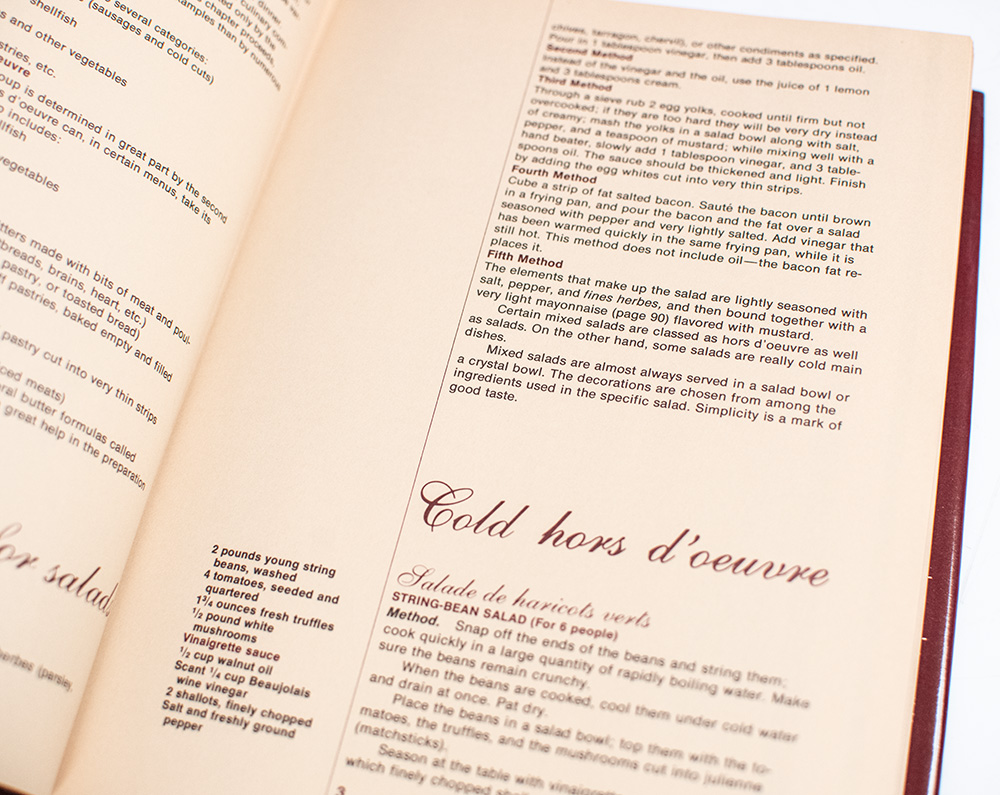 dinner
culinary
only by the
chapter proceeds,
examples than by numerous
several categories:
shellfish
(sausages and cold cuts)
s and other vegetables
stries, etc.
oeuvre
oup is determined in great part by the second
s d'oeuvre can, in certain menus, take its
includes:
llfish
vegetables
tters made with bits of meat and poul-
tbreads, brains, heart, etc.)
pastry, or toasted bread)
ff pastries, baked empty and filled
pastry cut into very thin strips
ced meats)
eral butter formulas called
great help in the preparation
for salad
herbes (parsley,
chives, tarragon, chervil), or other condiments as specified.
Pour in 1 tablespoon vinegar, then add 3 tablespoons oil.
Second Method
Instead of the vinegar and the oil, use the juice of 1 lemon
and 3 tablespoons cream.
Third Method
Through a sieve rub 2 egg yolks, cooked until firm but not
overcooked; if they are too hard they will be very dry instead
of creamy; mash the yolks in a salad bowl along with salt,
pepper, and a teaspoon of mustard; while mixing well with a
hand beater, slowly add 1 tablespoon vinegar, and 3 table-
spoons oil. The sauce should be thickened and light. Finish
by adding the egg whites cut into very thin strips.
Fourth Method
Cube a strip of fat salted bacon. Sauté the bacon until brown
in a frying pan, and pour the bacon and the fat over a salad
seasoned with pepper and very lightly salted. Add vinegar that
has been warmed quickly in the same frying pan, while it is
still hot. This method does not include oil—the bacon fat re-
places it.
Fifth Method
The elements that make up the salad are lightly seasoned with
salt, pepper, and fines herbes, and then bound together with a
very light mayonnaise (page 90) flavored with mustard.
Certain mixed salads are classed as hors d'oeuvre as well
as salads. On the other hand, some salads are really cold main
dishes.
Mixed salads are almost always served in a salad bowl or
a crystal bowl. The decorations are chosen from among the
ingredients used in the specific salad. Simplicity is a mark of
good taste.
Cold hors d'oeuvre
2 pounds young string
beans, washed
4 tomatoes, seeded and
quartered
1¾ ounces fresh truffles
½ pound white
mushrooms
Vinaigrette sauce
½ cup walnut oil
Scant ¼ cup Beaujolais
wine vinegar
2 shallots, finely chopped
Salt and freshly ground
pepper
Salade de haricots verts
STRING-BEAN SALAD (For 6 people)
Method. Snap off the ends of the beans and string them;
cook quickly in a large quantity of rapidly boiling water. Make
sure the beans remain crunchy.
When the beans are cooked, cool them under cold water
and drain at once. Pat dry.
Place the beans in a salad bowl; top them with the to-
matoes, the truffles, and the mushrooms cut into julienne
(matchsticks).
Season at the table with vinaigrette
which finely chopped